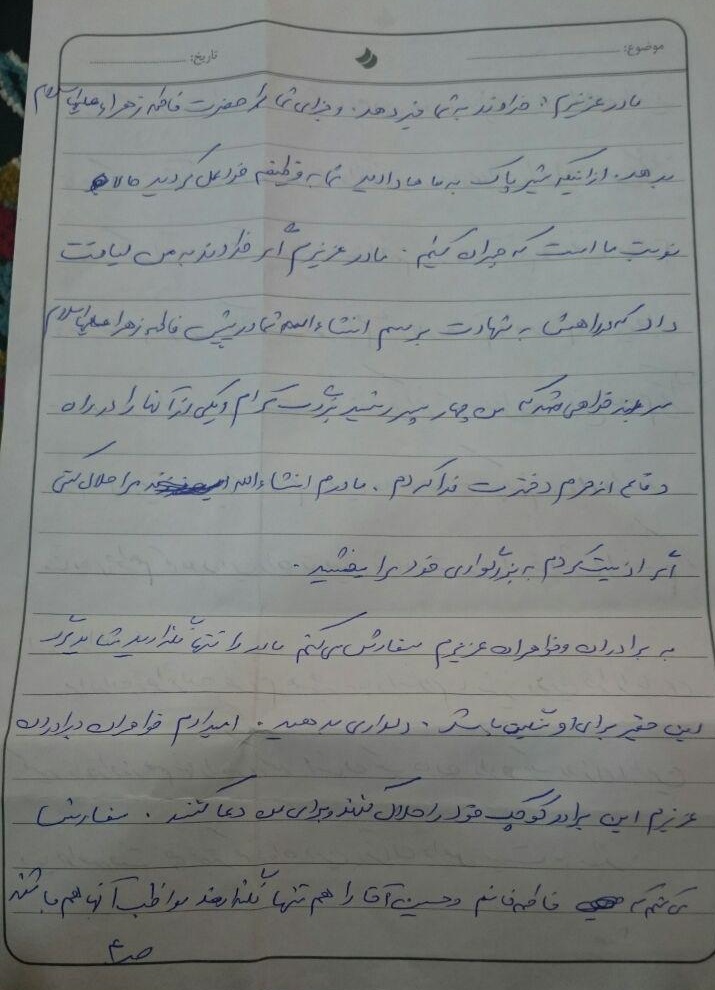 موضوع: تاریخ:
مادر عزیزم؛ خداوند به شما خیر دهد. و جزای شما را حضرت فاطمه زهراء علیها سلام
بدهد. از اینکه شیر پاک به ما ها دادید شما به وظیفه خود عمل کردید حالا
نوبت ما است که جبران کنیم. مادر عزیزم اگر خداوند به من لیاقت
داد که در راهش به شهادت برسم انشاءالله شما در پیش فاطمه زهرا علیها سلام
سربلند خواهی شد که من چهار پسر رشید بزرگ کرده‌ام و یکی از آنها را در راه
دفاع از حرم دخترت فدا کردم. مادرم انشاءالله مرا حلال کنی
اگر اذیت کردم به بزرگواری خود مرا ببخشید.
به برادران و خواهران عزیزم سفارش می‌کنم مادر را تنها نگذارید شاید نبود
این حقیر برای او سنگین باشد. دلداری بدهید. امیدوارم خواهران و برادران
عزیزم این برادر کوچک خود را حلال کنند و برای من دعا کنند. سفارش
می‌کنم که فاطمه خانم و حسین آقا را هم تنها نگذارند مواظب آنها هم باشند
ص۴